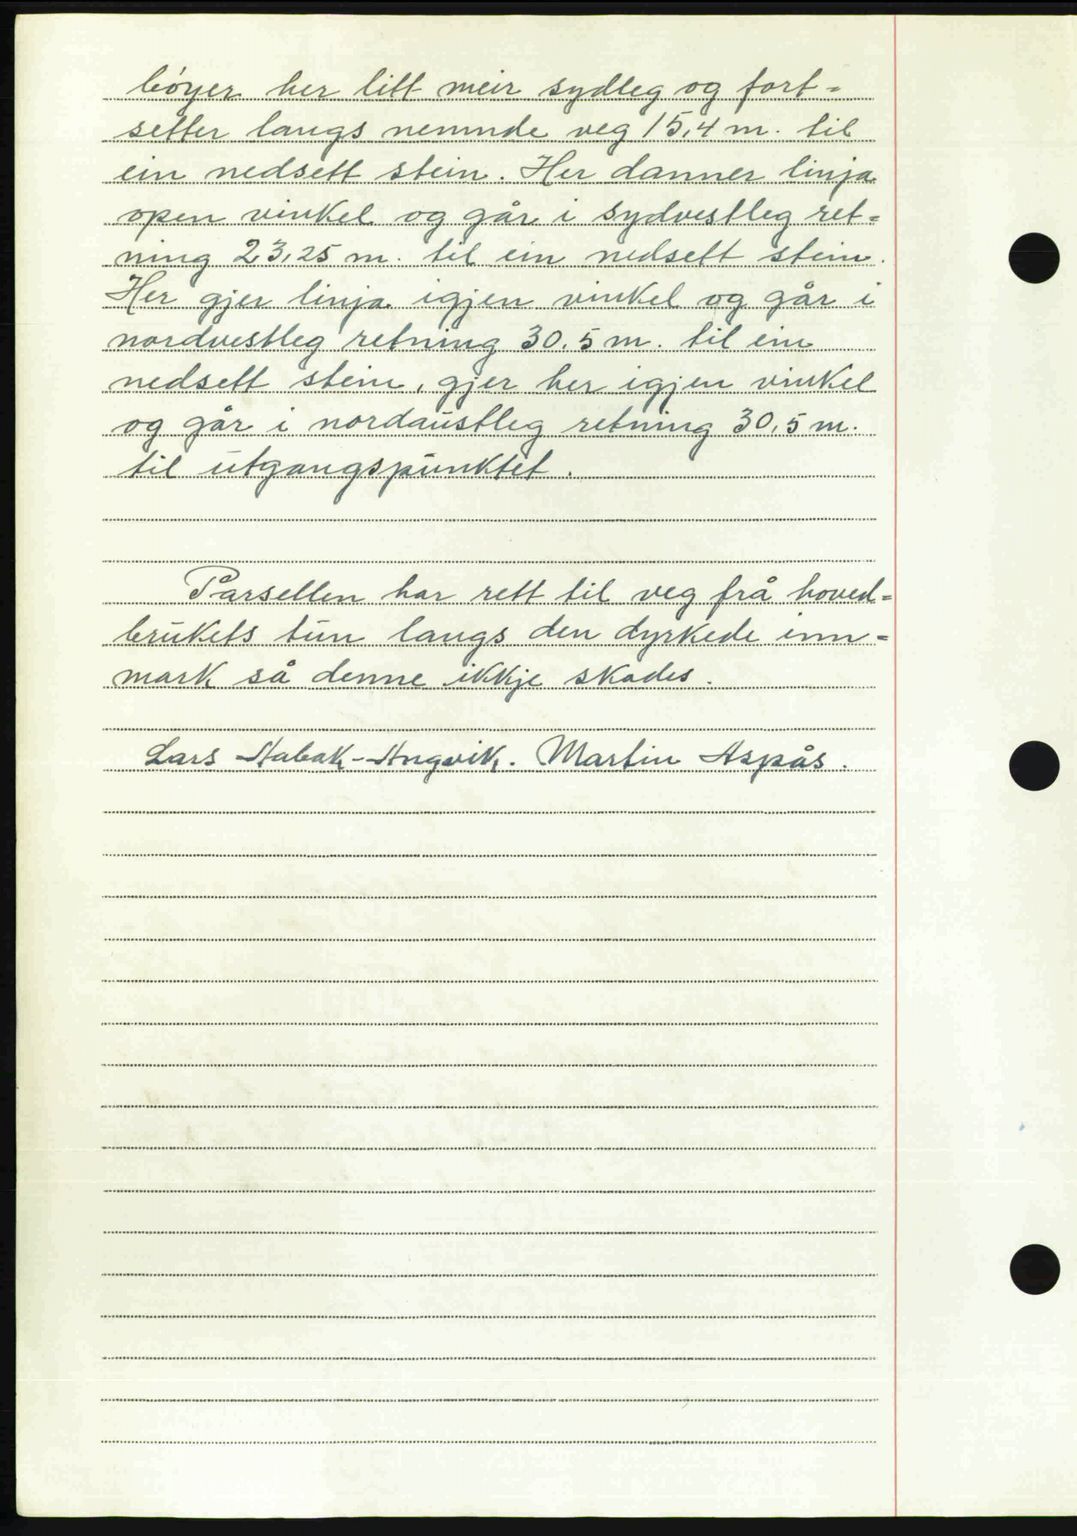 bóyer her litt meir sydleg og fort=
setter langs nemnde veg 15,4 m. til
ein nedsett stein. Her danner linja
open vinkel og går i sydvestleg ret=
ning 23,25 m. til ein nedsett stein.
Her gjer linja igjen vinkel og går i
nordvestleg retning 30.5 m. til ein
nedsett stein, gjer her igjen vinkel
og går i nordaustleg retning 30,5 m.
til utgangspunktet.
Parsellen har rett til veg frå hoved=
brukets tun langs den dyrkede inn=
mark så denne ikkje skades.
Lars Habak-Angvik. Martin Aspås.